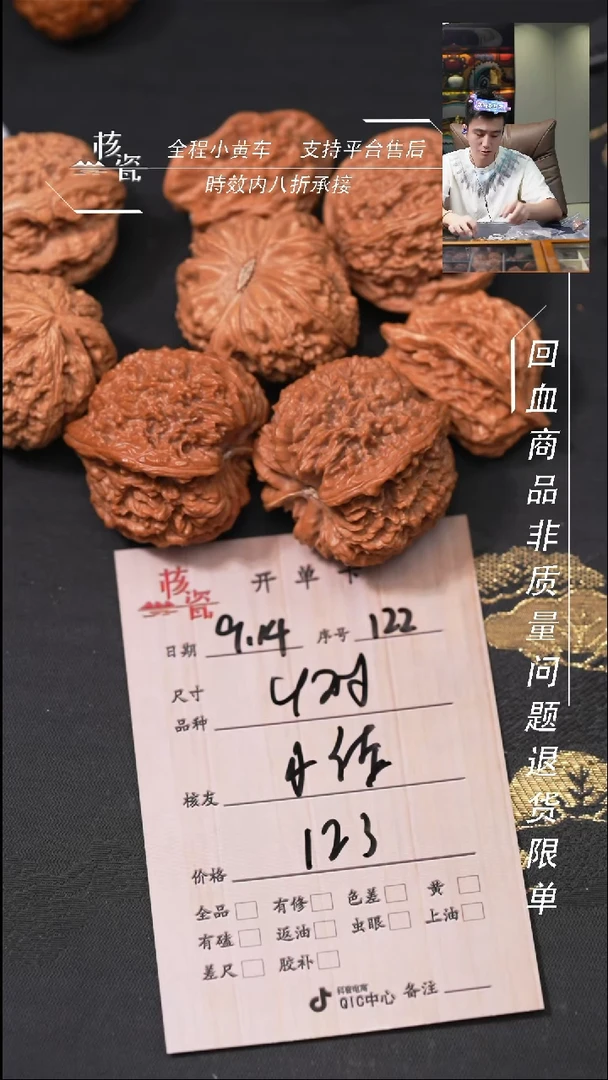 核瓷
全程小黄车 支持平台售后
時效内八折承接
回血商品非质量问题退货限单
核瓷
开单卡
日期 9.14 序号 122
尺寸
品种 4对
核友
价格 123
全品 有修 色差 黄
有磕 返油 虫眼 上油
差尺 胶补
抖音电商
QIC中心 备注